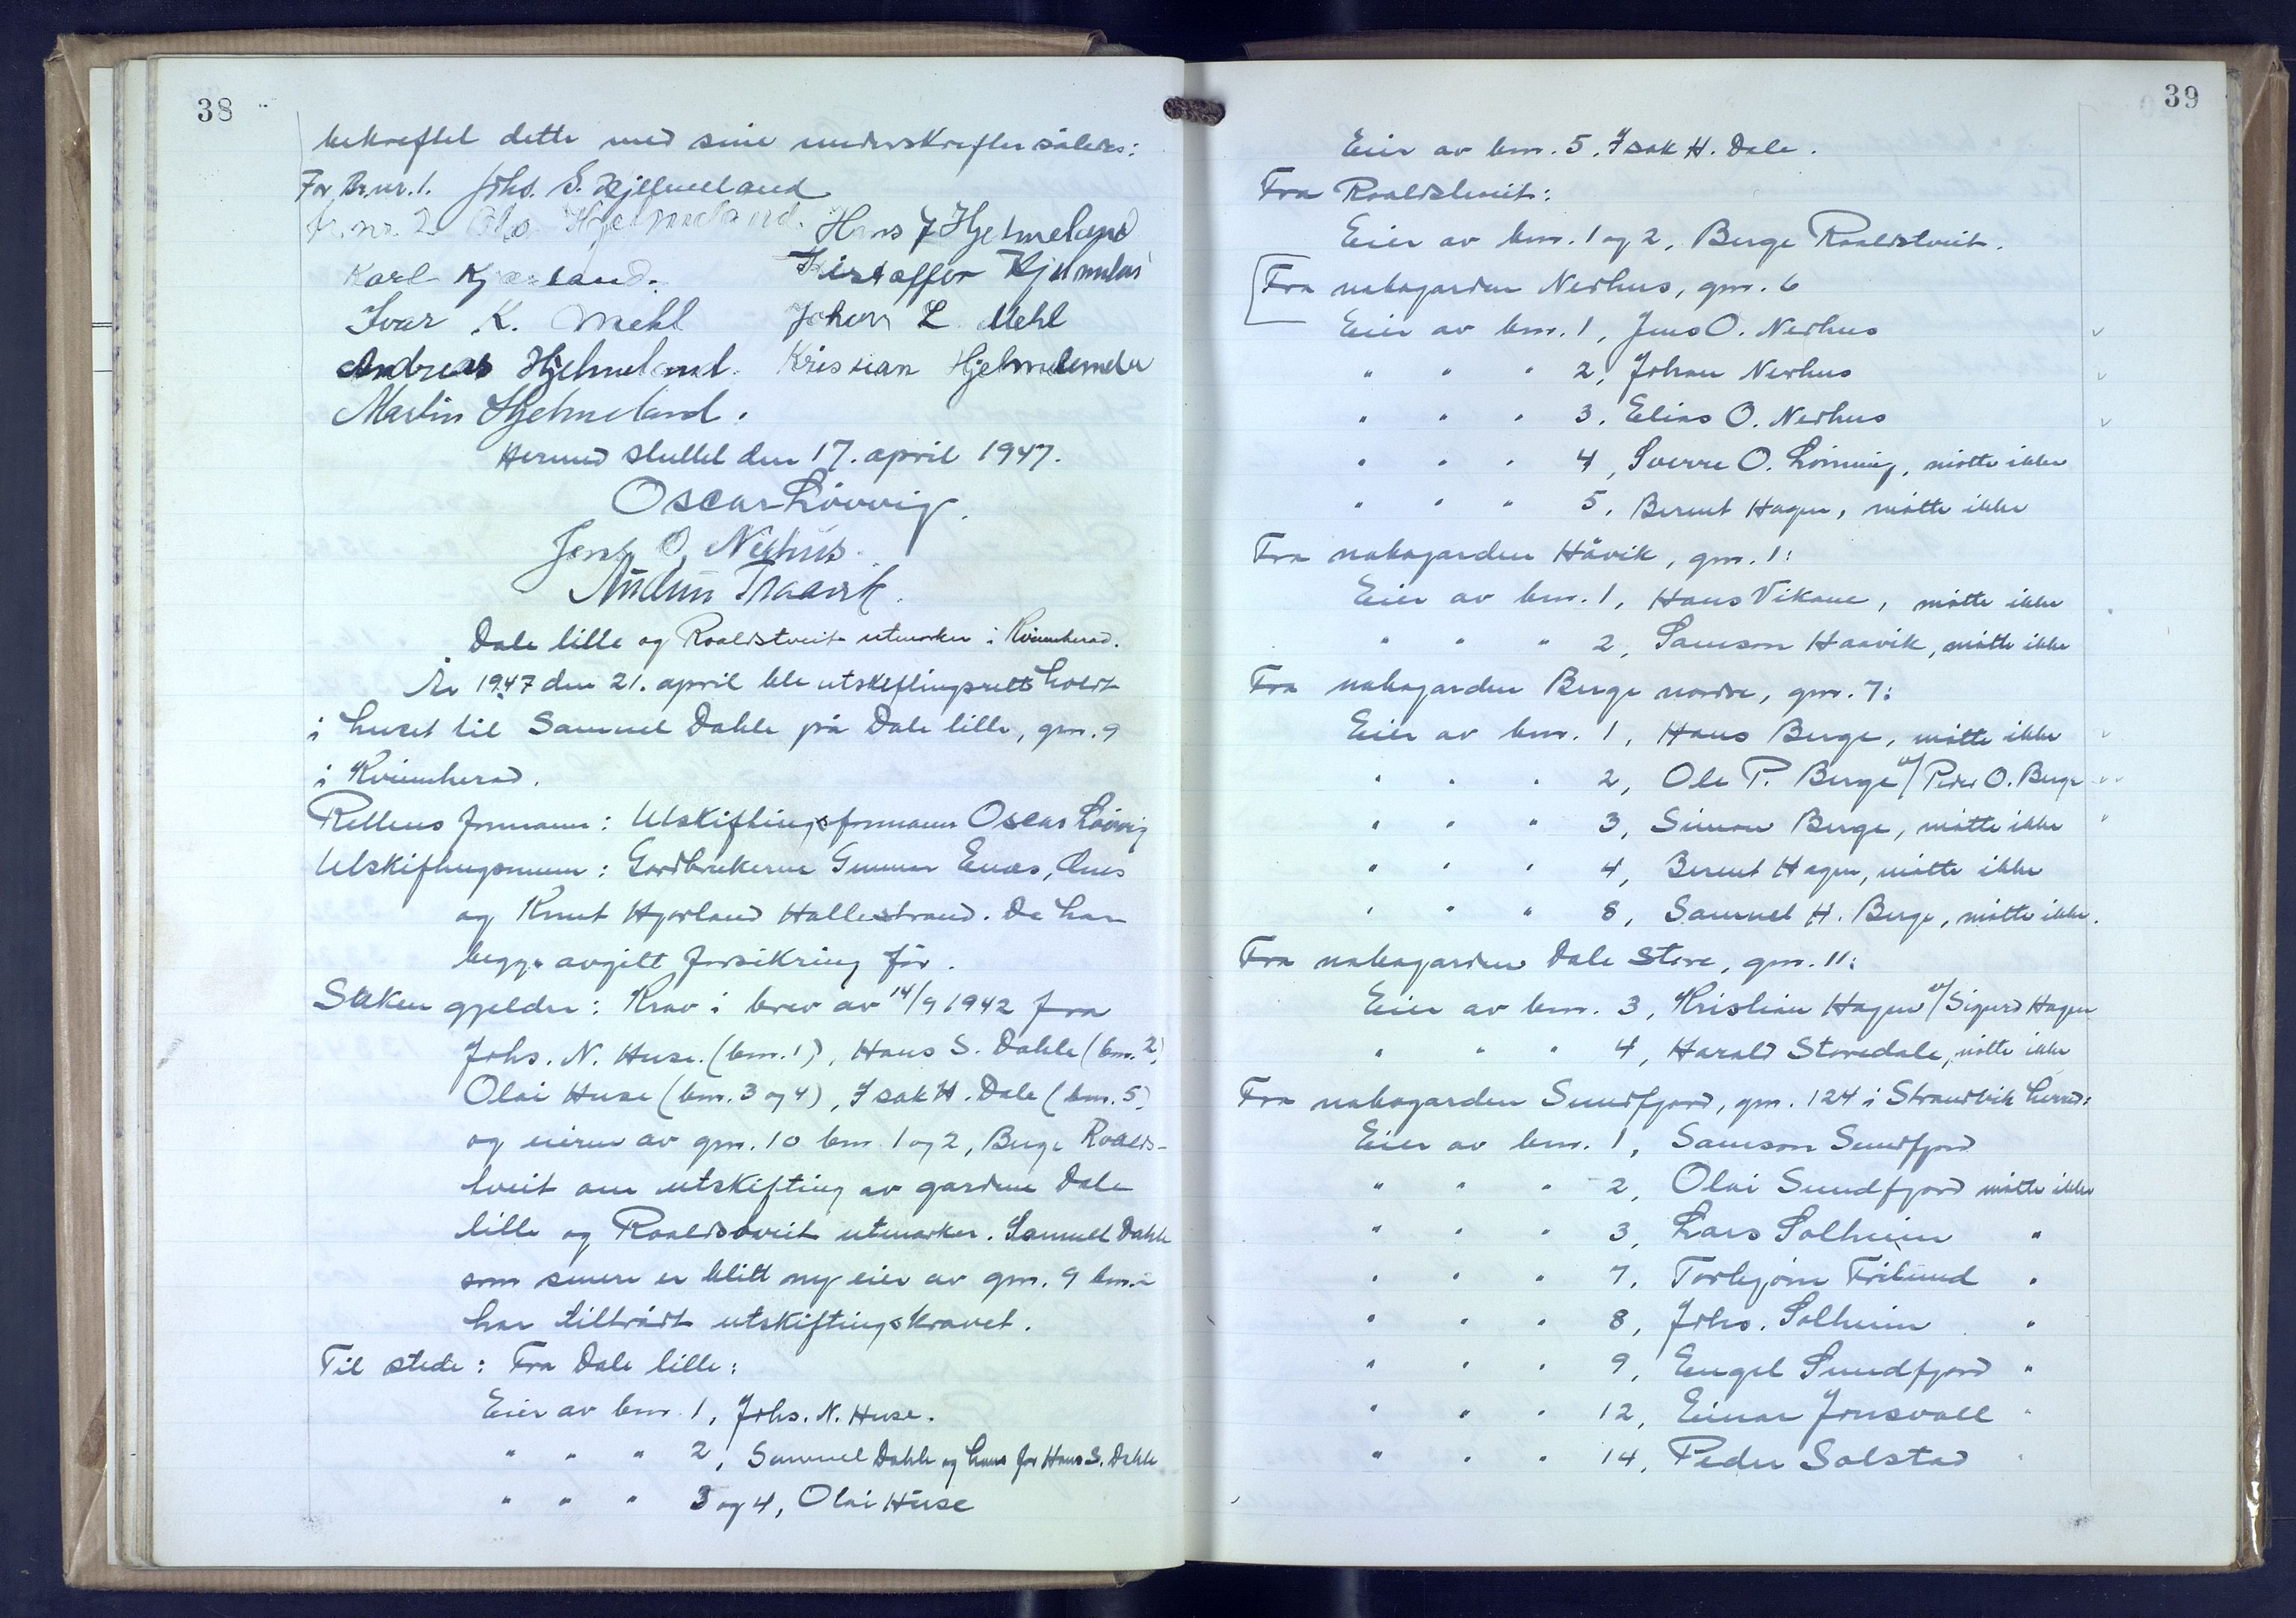 38
bekreftet dette med sine underskrifter således:
For Br.nr. 1. Johs. S. Hjelmeland
Br.nr. 2 Ola Hjelmeland. Hans J Hjelmeland
Karl Kjærland. Kristoffer Hjelmeland
Ivar K. Mehl Johan L. Mehl
Andreas Hjelmeland. Kristian Hjelmeland
Martin Hjelmeland.
Hermed sluttet den 17. april 1947.
Oscar Lövvig.
Jens O. Nerhus.
Audun Traavik.
Dale lille og Roaldstveit utmarker i Kvinnherad.
År 1947 den 21. april ble utskiftingsrett holdt
i huset til Samuel Dahle på Dale lille, gnr. 9
i Kvinnherad.
Rettens formann: Utskiftingsformann Oscar Lövvig
Utskiftingsmenn: Gardbrukerne Gunnar Enæs, Ænes
og Knut Hjorland Hallestrand. De har
begge avgitt forsikring för.
Saken gjelder: Krav i brev av 14/9 1942 fra
Johs. N. Huse. (bnr. 1), Hans S. Dahle (bnr. 2)
Olai Huse (bnr. 3 og 4), Isak H. Dale (bnr. 5)
og eieren av gnr. 10 bnr. 1 og 2, Berge Roalds-
tveit om utskifting av gardene Dale
lille og Roaldstveit utmarker. Samuel Dahle
som senere er blitt ny eier av gnr. 9 bnr. 2
har tiltrådt utskiftingskravet.
Til stede: Fra Dale lille:
Eier av bnr. 1, Johs. N. Huse.
" " " 2, Samuel Dahle og hans for Hans S. Dahle
" " " 3 og 4, Olai Huse
39
Eier av bnr. 5. Isak H. Dale.
Fra Roaldstveit:
Eier av bnr. 1 og 2, Berge Roaldstveit.
Fra nabogarden Nerhus, gnr. 6
Eier av bnr. 1, Jens O. Nerhus
" " " 2, Johan Nerhus
" " " 3. Elias O. Nerhus
" " " 4, Sverre O. Lönning, mötte ikke
" " " 5, Berent Hagen, mötte ikke
Fra nabogarden Håvik, gnr. 1:
Eier av bnr. 1, Hans Vikane, mötte ikke
" " " 2, Samson Haavik, mötte ikke
Fra nabogarden Berge nordre, gnr. 7:
Eier av bnr. 1, Hans Berge, mötte ikke
" " " 2, Ole P. Berge v/ Peder O. Berge
" " " 3, Simon Berge, mötte ikke
" " " 4, Berent Hagen, mötte ikke
" " " 8, Samuel H. Berge, mötte ikke.
Fra nabogarden Dale Store, gnr. 11:
Eier av bnr. 3, Kristian Hagen v/ Sigurd Hagen
" " " 4, Harald Storedale, mötte ikke
Fra nabogarden Sundfjord, gnr. 124 i Strandvik herred:
Eier av bnr. 1, Samson Sundfjord
" " " 2, Olai Sundfjord mötte ikke
" " " 3, Lars Solheim "
" " " 7, Torbjörn Trilund "
" " " 8, Johs. Solheim "
" " " 9, Engel Sundfjord "
" " " 12, Einar Jonsvoll "
" " " 14, Peder Solstad "